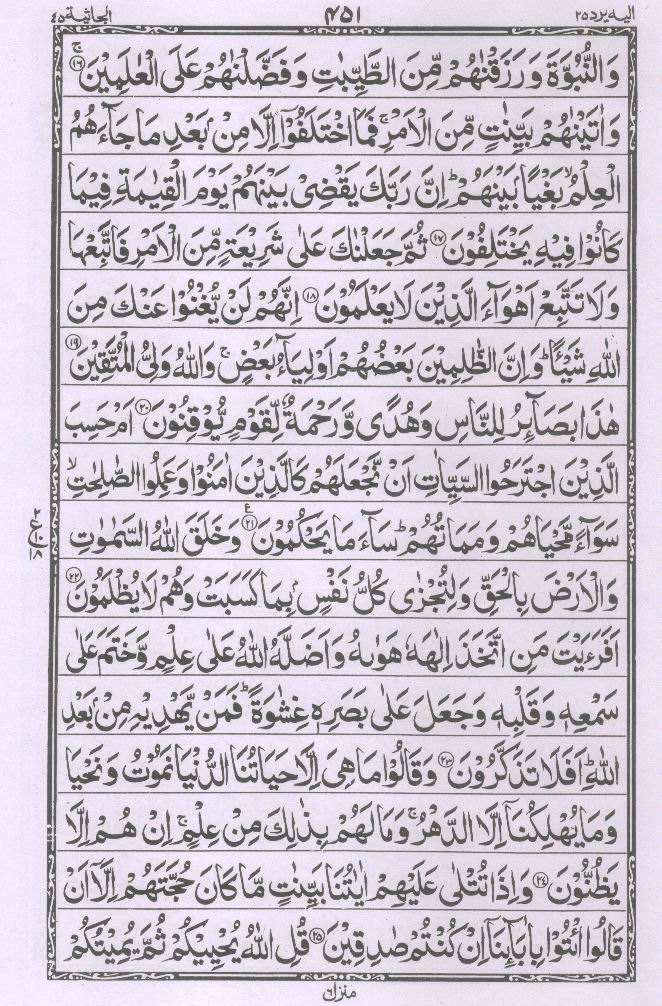 اليه يرد ٢٥
٤٥١
الجاثية ٤٥
وَالنُّبُوَّةَ وَرَزَقْنٰهُمْ مِّنَ الطَّيِّبٰتِ وَفَضَّلْنٰهُمْ عَلَى الْعٰلَمِيْنَ ۚ‏﴿۱۶﴾
وَاٰتَيْنٰهُمْ بَيِّنٰتٍ مِّنَ الْاَمْرِ ۚ فَمَا اخْتَلَفُوْۤا اِلَّا مِنْۢ بَعْدِ مَا جَآءَهُمُ
الْعِلْمُ ۙ بَغْيًاۢ بَيْنَهُمْ ؕ اِنَّ رَبَّكَ يَقْضِىْ بَيْنَهُمْ يَوْمَ الْقِيٰمَةِ فِيْمَا
كَانُوْا فِيْهِ يَخْتَلِفُوْنَ ﴿۱۷﴾ ثُمَّ جَعَلْنٰكَ عَلٰى شَرِيْعَةٍ مِّنَ الْاَمْرِ فَاتَّبِعْهَا
وَلَا تَتَّبِعْ اَهْوَآءَ الَّذِيْنَ لَا يَعْلَمُوْنَ ﴿۱۸﴾ اِنَّهُمْ لَنْ يُّغْنُوْا عَنْكَ مِنَ
اللّٰهِ شَيْـًٔا ؕ وَاِنَّ الظّٰلِمِيْنَ بَعْضُهُمْ اَوْلِيَآءُ بَعْضٍ ۚ وَاللّٰهُ وَلِىُّ الْمُتَّقِيْنَ ﴿۱۹﴾
هٰذَا بَصَآئِرُ لِلنَّاسِ وَهُدًى وَّرَحْمَةٌ لِّقَوْمٍ يُّوْقِنُوْنَ ﴿۲۰﴾ اَمْ حَسِبَ
الَّذِيْنَ اجْتَرَحُوا السَّيِّاٰتِ اَنْ نَّجْعَلَهُمْ كَالَّذِيْنَ اٰمَنُوْا وَعَمِلُوا الصّٰلِحٰتِ ۙ
سَوَآءً مَّحْيَاهُمْ وَمَمَاتُهُمْ ؕ سَآءَ مَا يَحْكُمُوْنَ ﴿۲۱﴾ ع وَخَلَقَ اللّٰهُ السَّمٰوٰتِ
٢ ع ١٠ ١٨
وَالْاَرْضَ بِالْحَقِّ وَلِتُجْزٰى كُلُّ نَفْسٍۢ بِمَا كَسَبَتْ وَهُمْ لَا يُظْلَمُوْنَ ﴿۲۲﴾
اَفَرَءَيْتَ مَنِ اتَّخَذَ اِلٰهَهٗ هَوٰىهُ وَاَضَلَّهُ اللّٰهُ عَلٰى عِلْمٍ وَّخَتَمَ عَلٰى
سَمْعِهٖ وَقَلْبِهٖ وَجَعَلَ عَلٰى بَصَرِهٖ غِشٰوَةً ؕ فَمَنْ يَّهْدِيْهِ مِنْۢ بَعْدِ
اللّٰهِ ؕ اَفَلَا تَذَكَّرُوْنَ ﴿۲۳﴾ وَقَالُوْا مَا هِىَ اِلَّا حَيَاتُنَا الدُّنْيَا نَمُوْتُ وَنَحْيَا
وَمَا يُهْلِكُنَاۤ اِلَّا الدَّهْرُ ۚ وَمَا لَهُمْ بِذٰلِكَ مِنْ عِلْمٍ ۚ اِنْ هُمْ اِلَّا
يَظُنُّوْنَ ﴿۲۴﴾ وَاِذَا تُتْلٰى عَلَيْهِمْ اٰيٰتُنَا بَيِّنٰتٍ مَّا كَانَ حُجَّتَهُمْ اِلَّاۤ اَنْ
قَالُوا ائْتُوْا بِاٰبَآئِنَاۤ اِنْ كُنْتُمْ صٰدِقِيْنَ ﴿۲۵﴾ قُلِ اللّٰهُ يُحْيِيْكُمْ ثُمَّ يُمِيْتُكُمْ
منزل ٦